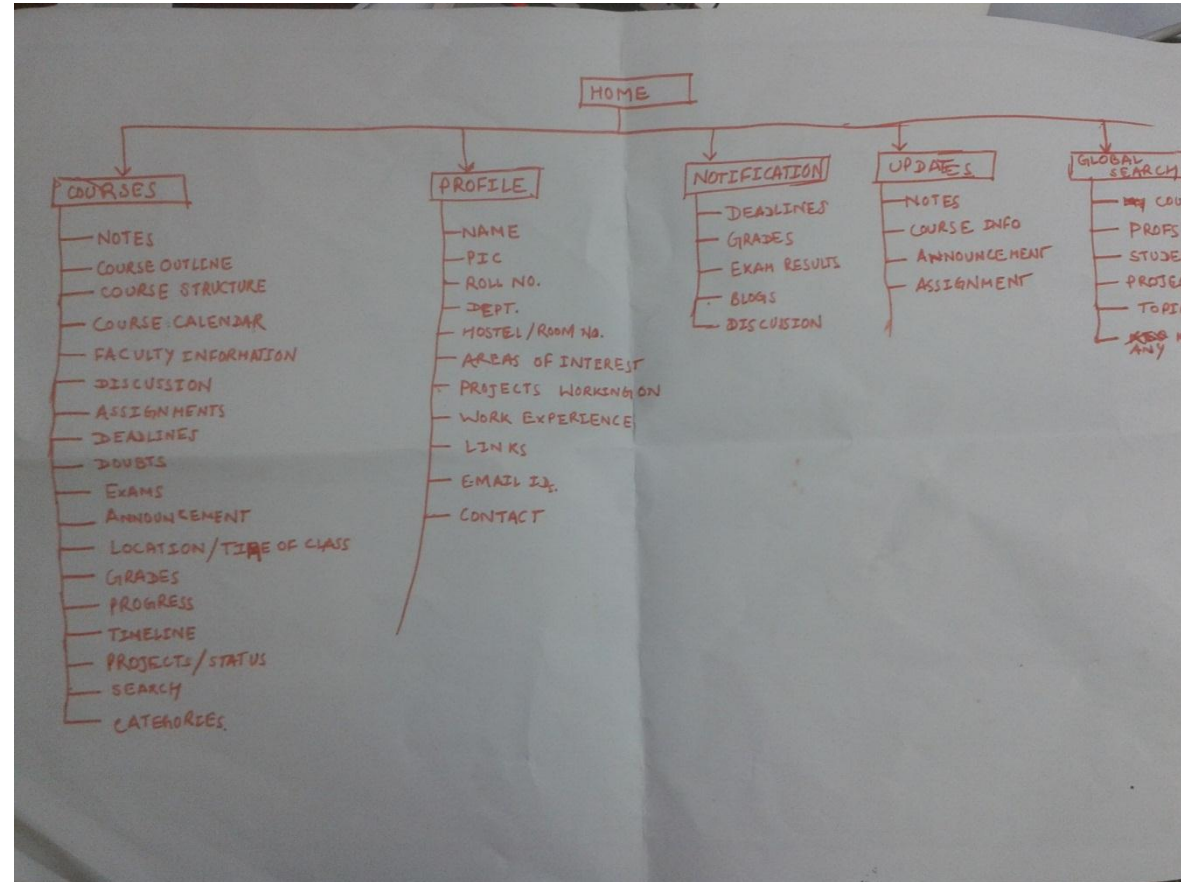 HOME
COURSES
NOTES
COURSE OUTLINE
COURSE STRUCTURE
COURSE CALENDAR
FACULTY INFORMATION
DISCUSSION
ASSIGNMENTS
DEADLINES
DOUBTS
EXAMS
ANNOUNCEMENT
LOCATION/TIME OF CLASS
GRADES
PROGRESS
TIMELINE
PROJECTS/STATUS
SEARCH
CATEGORIES
PROFILE
NAME
PIC
ROLL NO.
DEPT.
HOSTEL/ROOM NO.
AREAS OF INTEREST
PROJECTS WORKING ON
WORK EXPERIENCE
LINKS
EMAIL ID
CONTACT
NOTIFICATION
DEADLINES
GRADES
EXAM RESULTS
BLOGS
DISCUSSION
UPDATES
NOTES
COURSE INFO
ANNOUNCEMENT
ASSIGNMENT
GLOBAL
SEARCH
COU
PROFS
STUDE
PROJE
TOPI
ANY